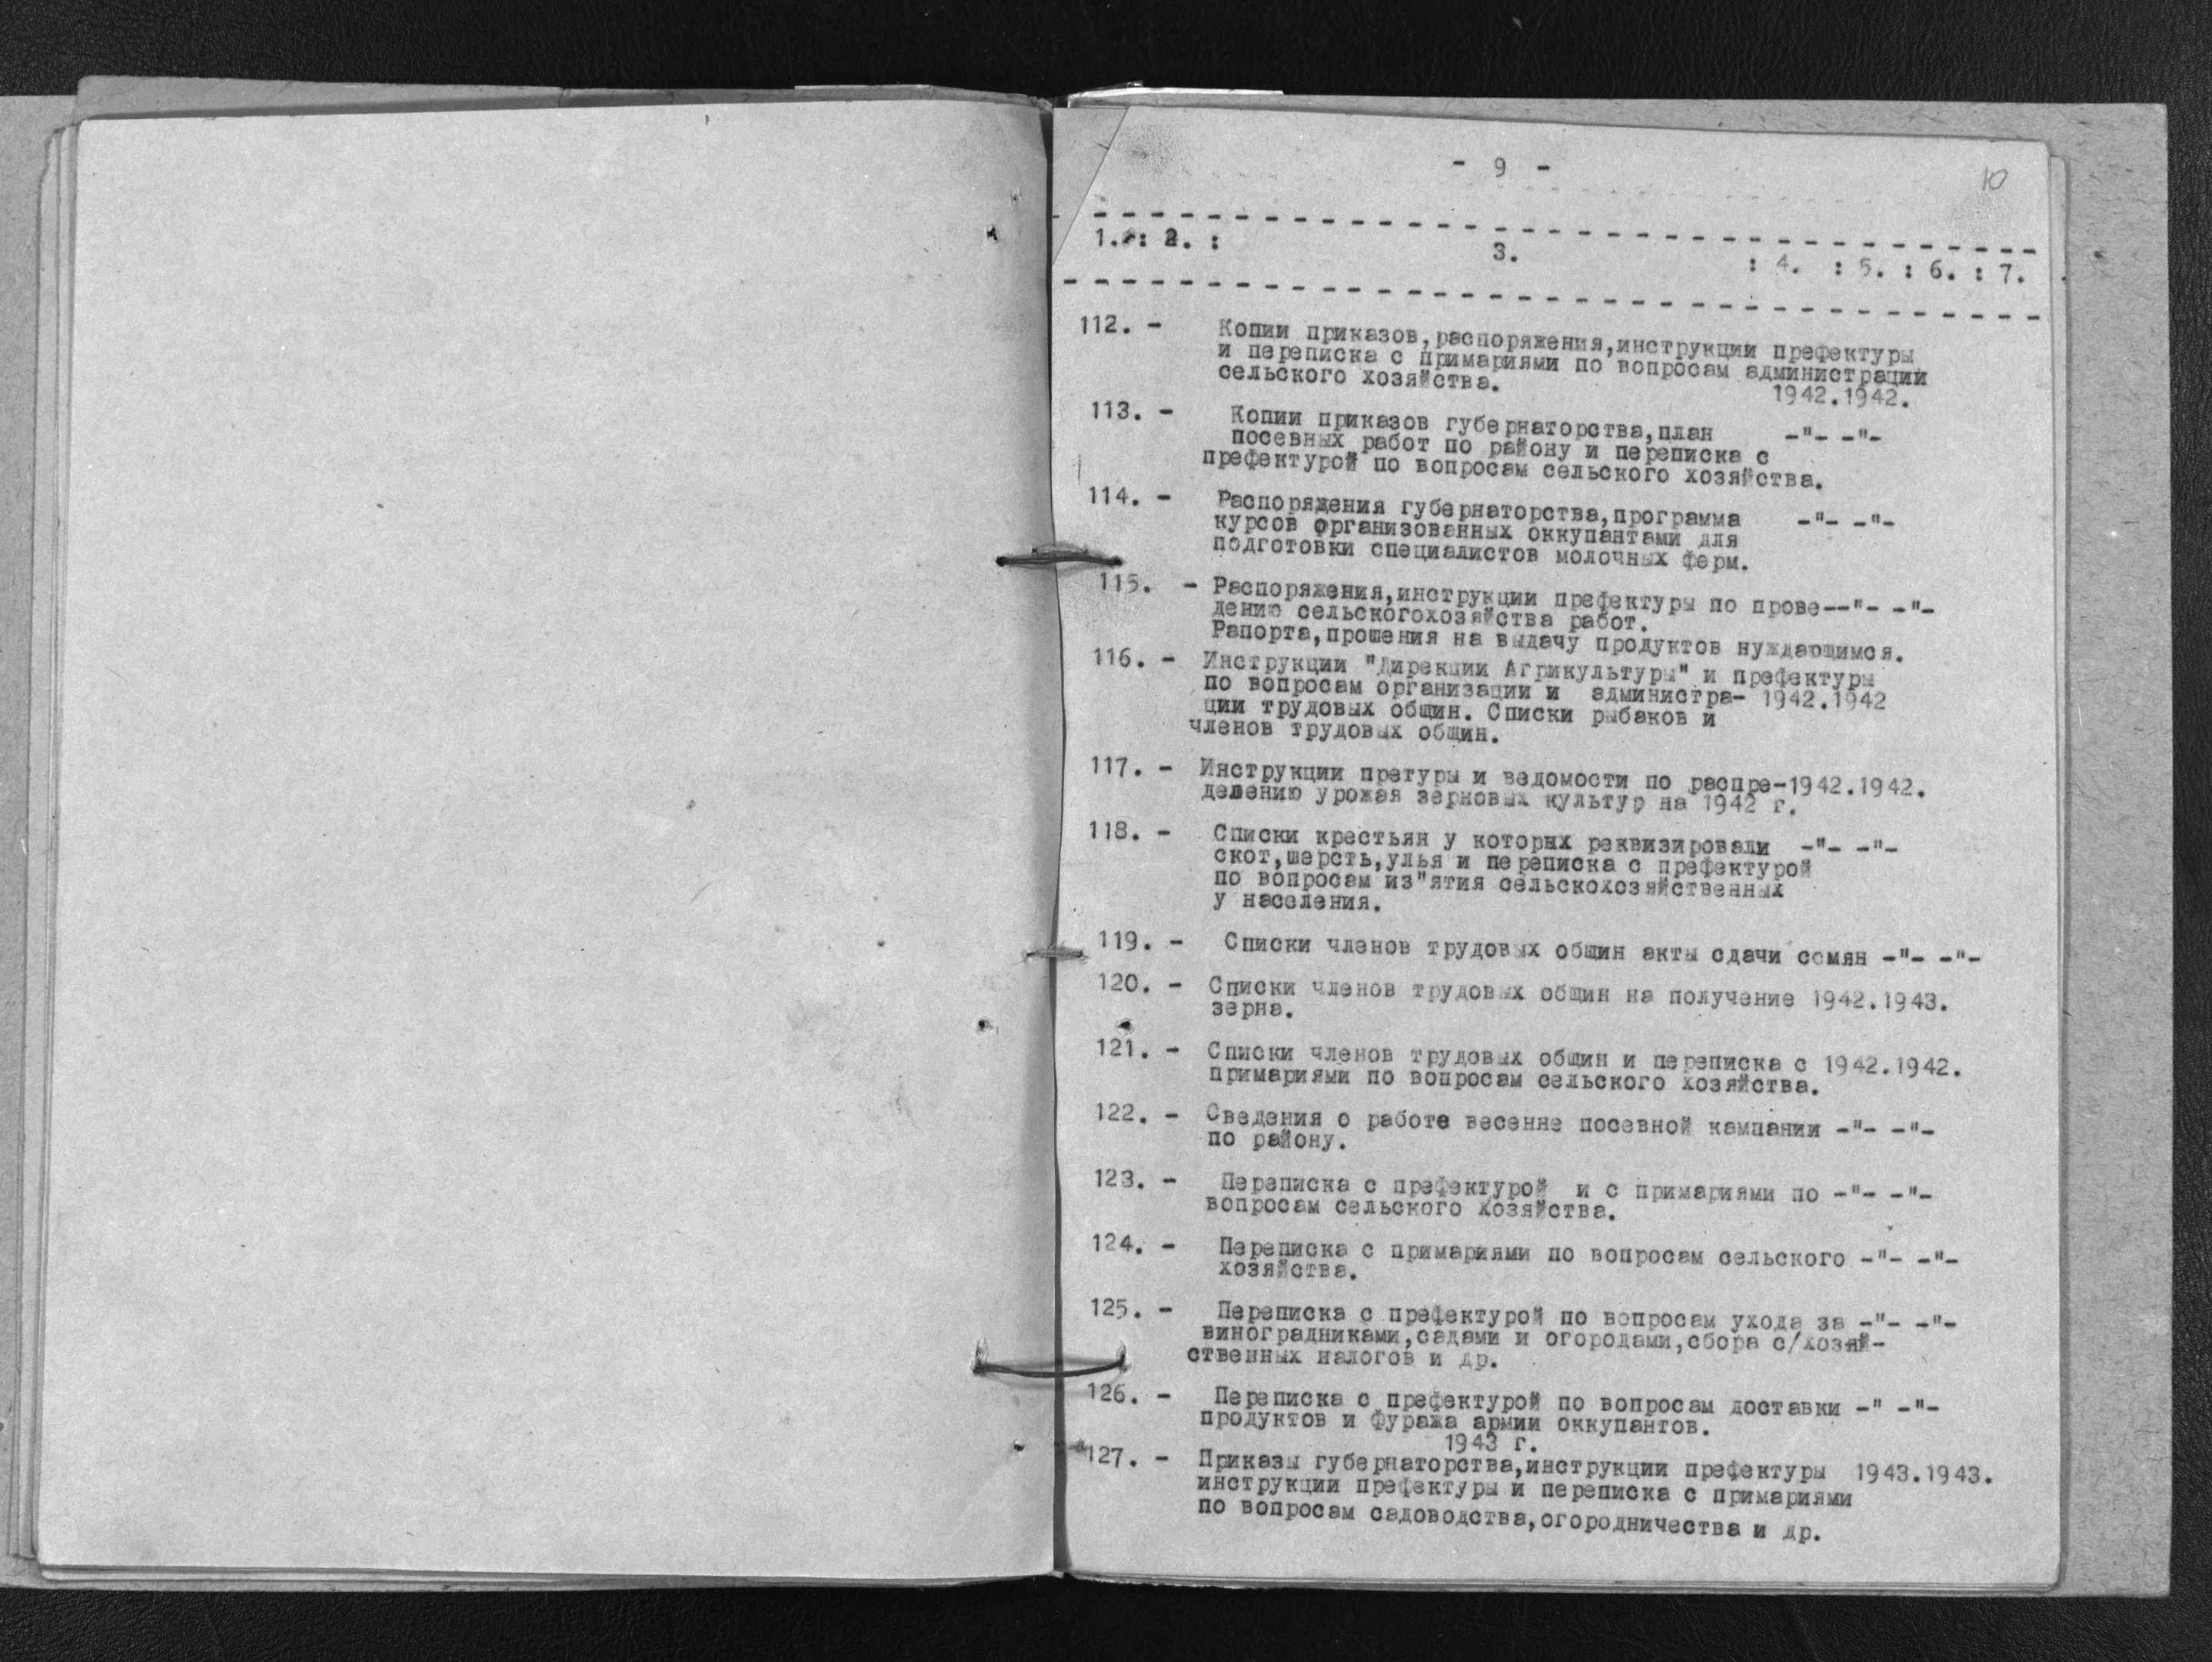 - 9 -
10
1. : 2. : 3. : 4. : 5. : 6. : 7.
112. - Копии приказов,распоряжения,инструкции префектуры
и переписка с примариями по вопросам администрации
сельского хозяйства. 1942.1942.
113. - Копии приказов губернаторства,план -"- -"-
посевных работ по району и переписка с
префектурой по вопросам сельского хозяйства.
114. - Распоряжения губернаторства,программа -"- -"-
курсов организованных оккупантами для
подготовки специалистов молочных ферм.
115. - Распоряжения,инструкции префектуры по прове--"- -"-
дению сельскогохозяйства работ.
Рапорта,прошения на выдачу продуктов нуждающимся.
116. - Инструкции "Дирекции Агрикультуры" и префектуры
по вопросам организации и администра- 1942.1942
ции трудовых общин. Списки рыбаков и
членов трудовых общин.
117. - Инструкции претуры и ведомости по распре-1942.1942.
делению урожая зерновых культур на 1942 г.
118. - Списки крестьян у которых реквизировали -"- -"-
скот,шерсть,улья и переписка с префектурой
по вопросам из"ятия сельскохозяйственных
у населения.
119. - Списки членов трудовых общин акты сдачи семян -"- -"-
120. - Списки членов трудовых общин на получение 1942.1943.
зерна.
121. - Списки членов трудовых общин и переписка с 1942.1942.
примариями по вопросам сельского хозяйства.
122. - Сведения о работе весенне посевной кампании -"- -"-
по району.
123. - Переписка с префектурой и с примариями по -"- -"-
вопросам сельского хозяйства.
124. - Переписка с примариями по вопросам сельского -"- -"-
хозяйства.
125. - Переписка с префектурой по вопросам ухода за -"- -"-
виноградниками,садами и огородами,сбора с/хозяй-
ственных налогов и др.
126. - Переписка с префектурой по вопросам доставки -" -"-
продуктов и фуража армии оккупантов.
1943 г.
127. - Приказы губернаторства,инструкции префектуры 1943.1943.
инструкции префектуры и переписка с примариями
по вопросам садоводства,огородничества и др.